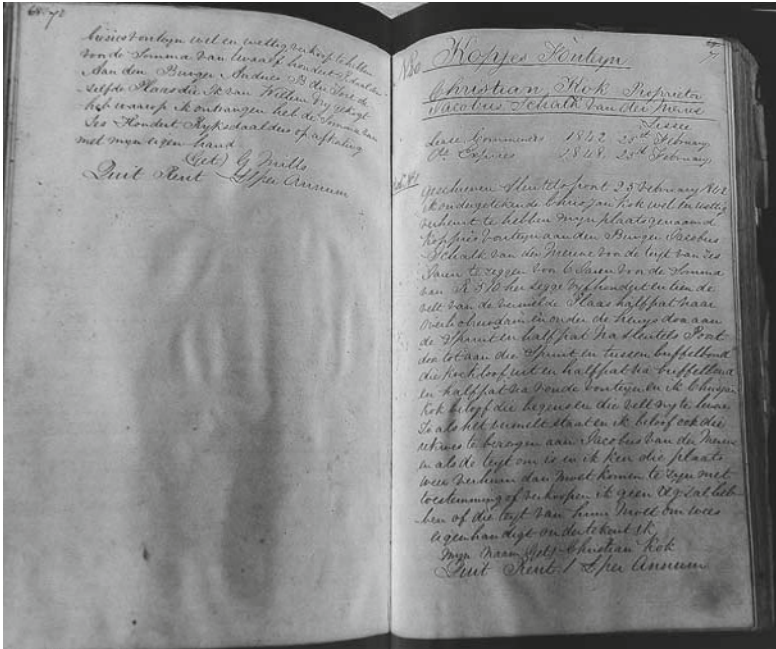 70
vonteyn wel en wettig verkop te hebben
voor de Somma van twaalf hondert
Aan den Burger Andries B du Toit de
zelfde Plaas die Ik van Willem
heb waarop ik ontvangen heb de Somma van
Ses Hondert Ryksdaalders op afkaling
met myn eigen hand
(Get) G Mills
Quit Rent per Annum
71
No Kopjes Fonteyn
Christian Kok Proprietor
Jacobus Schalk van der Merwe
Lessee
Lease Commences 1842 25th February
Do Expires 1848 25th February
Geschreven Sleutelspoort 25 February 1842
ik ondergetekende Chrisjan Kok wel en wettig
verheurt te hebben myn plaats genaamd
Koppies vonteyn aan den Burger Jacobus
Schalk van der Merwe voor de teyt van ses
Jaren te zeggen voor 6 Jaren voor de Somma
van segge vyf hondert en tien de
velt van de vermelde Plaas halfpat naar
en onder de kruys door aan
de Spruit en halfpat na Sleutels Poort
dor tot aan die Spruit en tussen buffelbout
die kock loof uit en halfpat na buffelbout
en halfpat na ronde vonteyn en ik Chrisjan
Kok beloof die begensen die velt te
So als het vermelt staat en ik beloof ook die
te besorgen aan Jacobus van der Merwe
en als de teyt om is en ik ken die plaats
weer verhuur dan moet komen te zyn met
toestemming of verkoopen ik geen regt sal heb-
ben of die teyt van huur moet om wees
eigenhandigt ondertekent ik
myn naam (get) Christian Kok
Quit Rent 1 £ per Annum